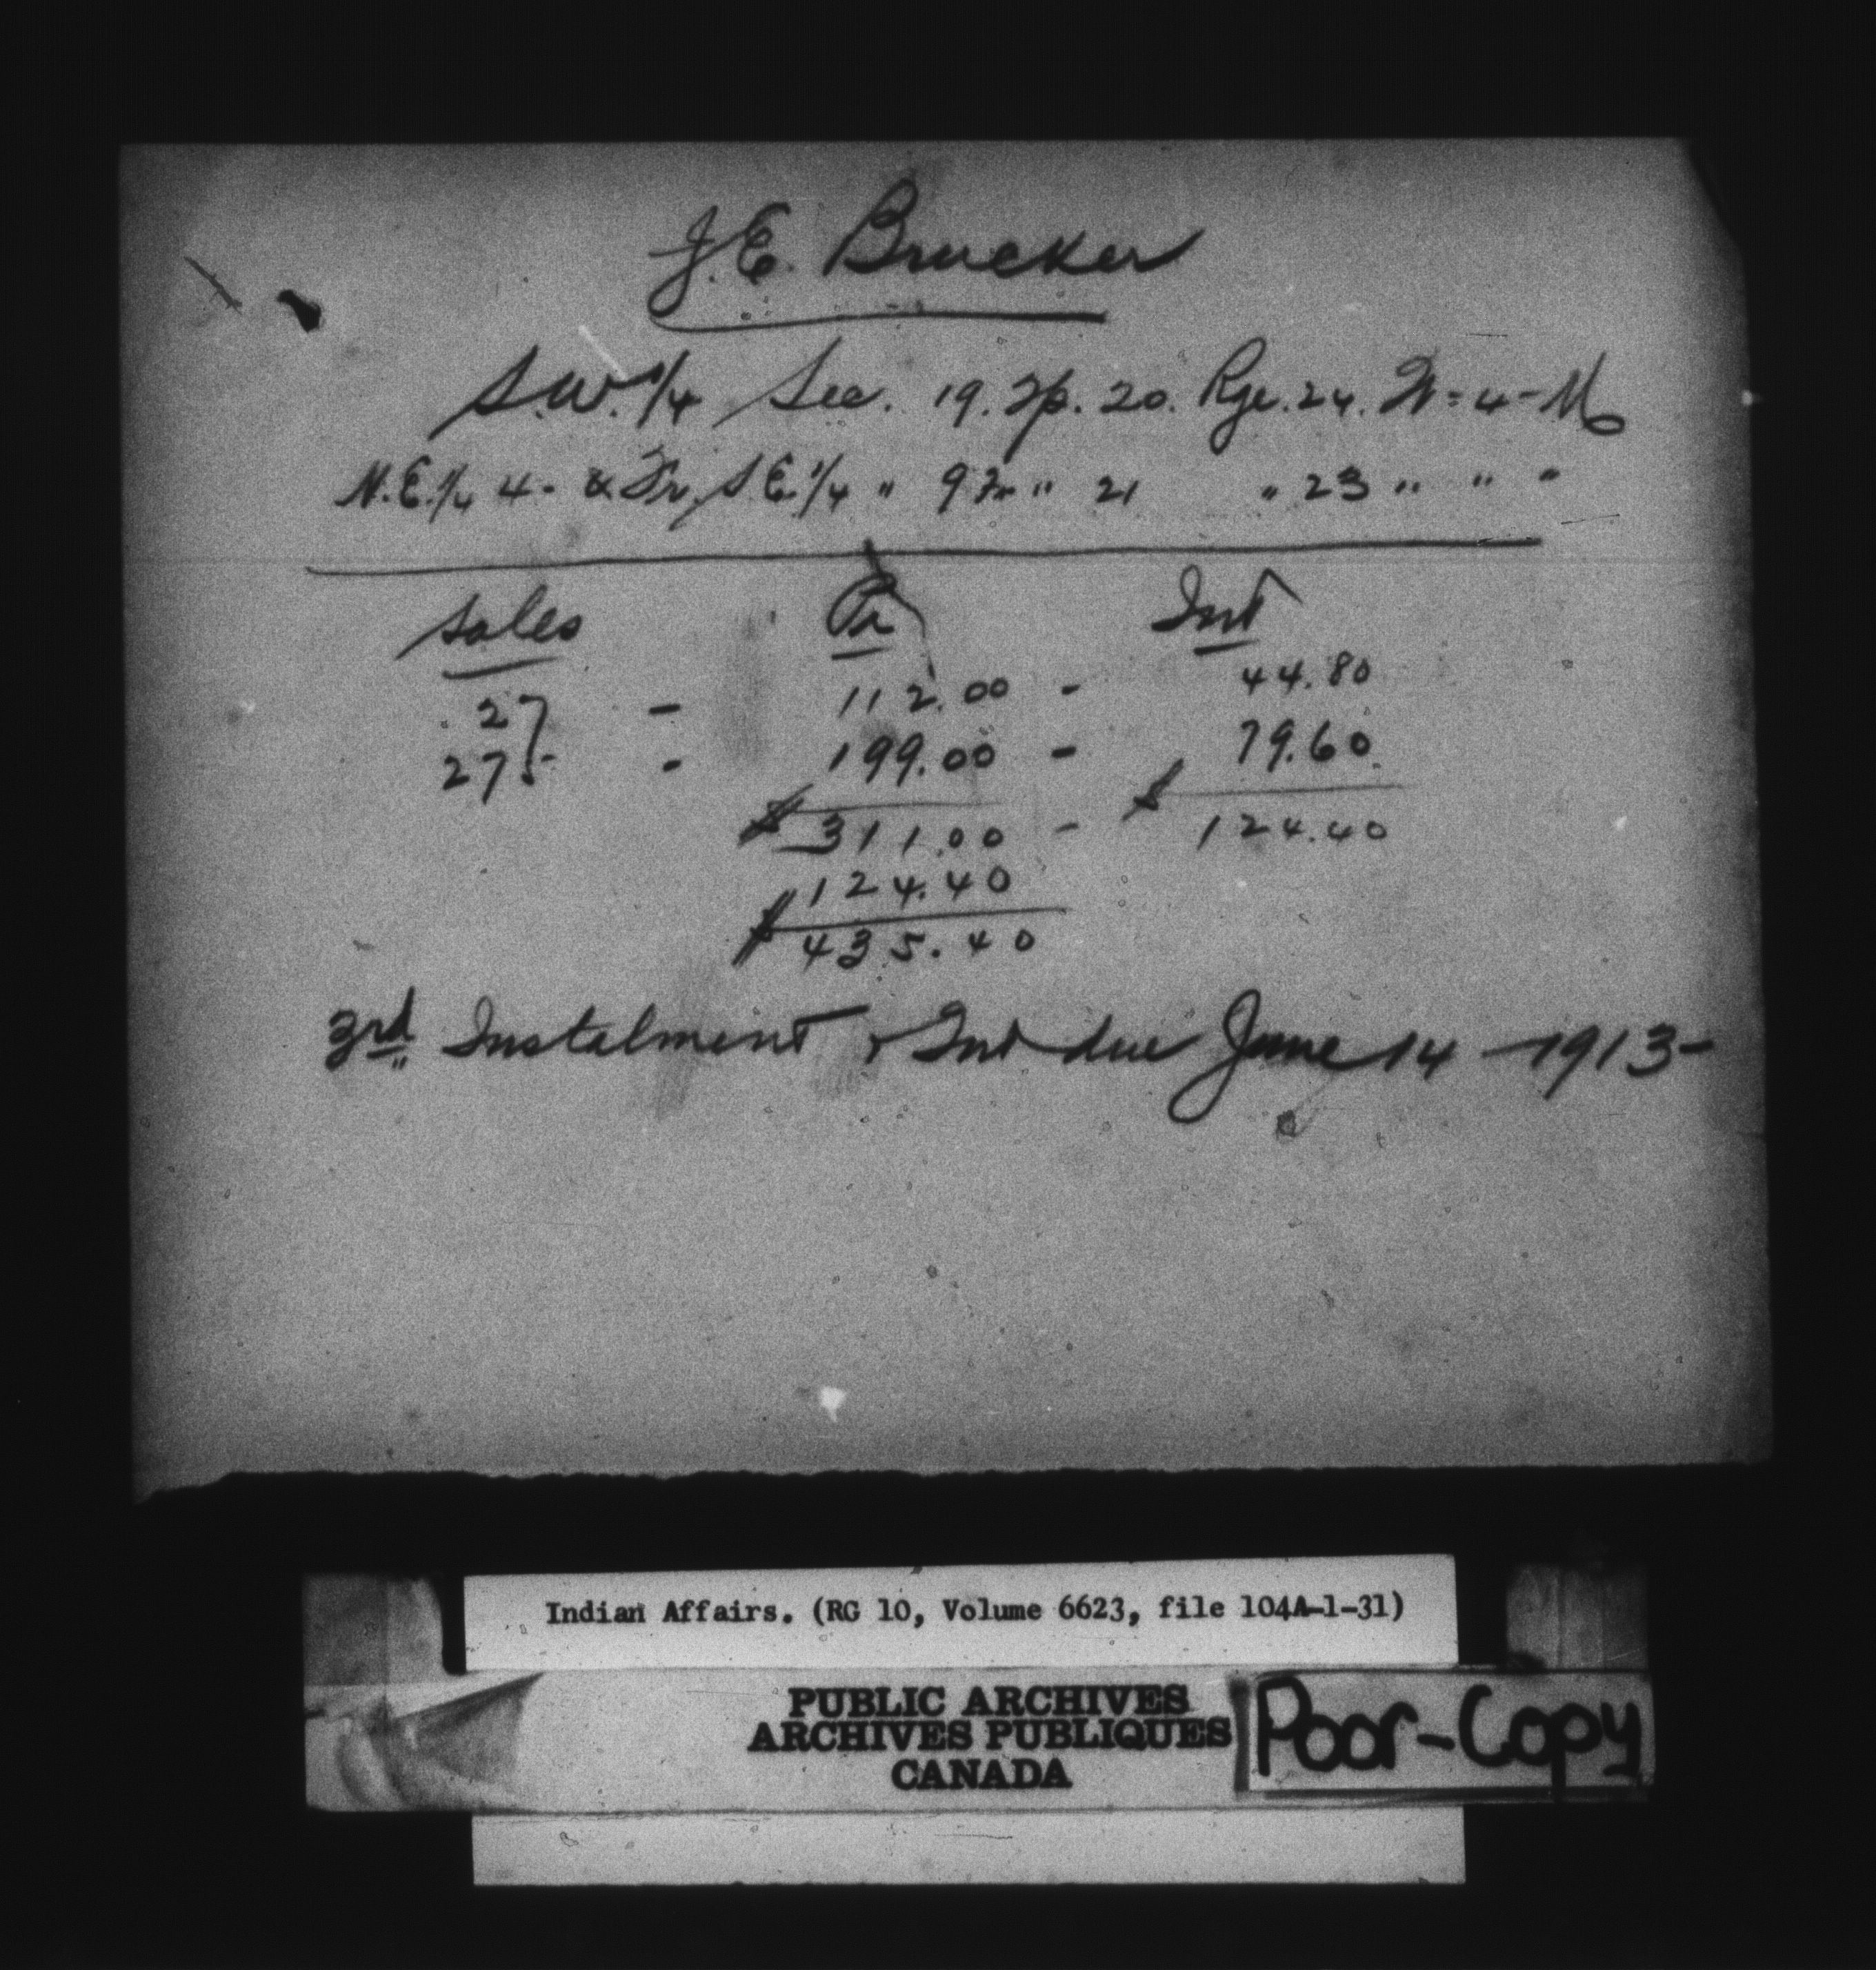 J.E. Brucker
S.W. 1/4 Sec. 19. Tp. 20. Rge. 24. W = 4 - M
N.E. 1/4 4 - & Fr. S.E. 1/4 " 9 " 21 " 23 " " "
Sales Pr Int
27 - 112.00 - 44.80
275 - 199.00 - 79.60
$ 311.00 - $ 124.40
124.40
$ 435.40
3rd Instalment & Int due June 14 - 1913 -
Indian Affairs. (RG 10, Volume 6623, file 104A-1-31)
PUBLIC ARCHIVES
ARCHIVES PUBLIQUES
CANADA
Poor-Copy